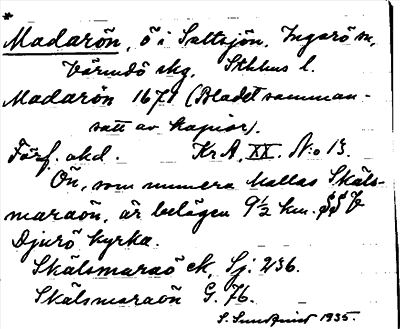 *
Madarön, ö i Saltsjön, Ingarö sn,
Värmdö skg, Sthlms l.
Madarön 1671 (Bladet samman-
satt av kapior).
Förf. okd. Kr A XX. N:o 13.
Ön, som numera kallas Skäls-
maraön, är belägen 9½ km. SSV
Djurö kyrka.
Skälsmaraö ek, Sj. 236.
Skälsmaraön G. 76.
S. Sundqvist 1935.